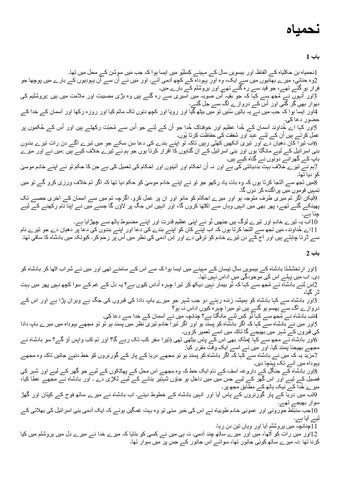 نحمیاہ
باب 1
1نحمیاہ بن حکلیاہ کے الفاظ اور بیسویں سال کے مہینے کسلیو میں ایسا ہوا کہ جب میں سوسن کے محل میں تھا۔
2تو حنانی، میرے بھائیوں میں سے ایک، وہ اور یہوداہ کے کچھ آدمی آئے۔ اور میں نے ان سے ان یہودیوں کے بارے میں پوچھا جو
فرار ہو گئے تھے، جو قید سے رہ گئے تھے اور یروشلم کے بارے میں۔
3اور انہوں نے مجھ سے کہا کہ جو بقیہ اس صوبہ میں اسیری سے رہ گئے ہیں وہ بڑی مصیبت اور ملامت میں ہیں۔ یروشلیم کی
دیوار بھی گر گئی اور اس کے دروازے آگ سے جل گئے۔
4اور ایسا ہوا کہ جب میں نے یہ باتیں سنیں تو میں بیٹھ گیا اور رویا اور کچھ دنوں تک ماتم کیا اور روزہ رکھا اور آسمان کے خدا کے
حضور دعا کی۔
5اور کہا اے خداوند آسمان کے خدا، عظیم اور خوفناک خدا جو ان کے لئے جو اس سے محبت رکھتے ہیں اور اس کے حکموں پر
عمل کرتے ہیں ان کے لئے عہد اور شفقت کی حفاظت کرتا ہوں۔
6اب تیرا کان دھیان دے اور تیری آنکھیں کھلی رہیں تاکہ تو اپنے بندے کی دعا سن سکے جو میں تیرے آگے دن رات تیرے بندوں
بنی اسرائیل کے لیے مانگتا ہوں اور بنی اسرائیل کے ان گناہوں کا اقرار کرتا ہوں جو ہم نے تیرے خلاف کیے ہیں۔ میں نے اور میرے
باپ کے گھرانے دونوں نے گناہ کیے ہیں۔
7ہم نے تیرے خلاف بہت بددیانتی کی ہے اور نہ ان احکام اور آئینوں اور احکام کی تعمیل کی ہے جن کا حکم تو نے اپنے خادم موسیٰ
کو دیا تھا۔
8میں تجھ سے التجا کرتا ہوں کہ وہ بات یاد رکھیو جو تو نے اپنے خادم موسیٰ کو حکم دیا تھا کہ اگر تم خلاف ورزی کرو گے تو میں
تمہیں قوموں میں پراگندہ کر دوں گا۔
9لیکن اگر تم میری طرف متوجہ ہو اور میرے احکام کو مانو اور ان پر عمل کرو۔ اگرچہ تم میں سے آسمان کے آخری حصے تک
پھینکے گئے تھے، پھر بھی میں انہیں وہاں سے اکٹھا کروں گا، اور انہیں اس جگہ پر لاؤں گا جسے میں نے اپنا نام رکھنے کے لیے
چنا ہے۔
10اب یہ تیرے خادم اور تیرے لوگ ہیں جنھیں تو نے اپنی عظیم قدرت اور اپنے مضبوط ہاتھ سے چھڑایا ہے۔
11اے خداوند، میں تجھ سے التجا کرتا ہوں کہ اب اپنے کان کو اپنے بندے کی دعا اور اپنے بندوں کی دعا پر دھیان دے جو تیرے نام
سے ڈرنا چاہتے ہیں اور آج کے دن تیرے خادم کو ترقی دے اور اس آدمی کی نظر میں اس پر رحم کر۔ کیونکہ میں بادشاہ کا ساقی تھا۔
باب 2
1اور ارتخششتا بادشاہ کے بیسویں سال نیسان کے مہینے میں ایسا ہوا کہ مے اس کے سامنے تھی اور میں نے شراب اٹھا کر بادشاہ کو
دی۔ اب میں پہلے اس کی موجودگی میں اداس نہیں تھا۔
2اس لئے بادشاہ نے مجھ سے کہا کہ تو بیمار نہیں دیکھ کر تیرا چہرہ اُداس کیوں ہے؟ یہ دل کے غم کے سوا کچھ نہیں پھر میں بہت
ڈر گیا،
3اور بادشاہ سے کہا بادشاہ کو ہمیشہ زندہ رہنے دو جب شہر جو میرے باپ دادا کی قبروں کی جگہ ہے ویران پڑا ہے اور اس کے
دروازے آگ سے بھسم ہو گئے ہیں تو میرا چہرہ کیوں اداس نہ ہو؟
4تب بادشاہ نے مجھ سے کہا تو کس لئے مانگتا ہے؟ چنانچہ میں نے آسمان کے خدا سے دعا کی۔
5اور میں نے بادشاہ سے کہا کہ اگر بادشاہ کو پسند ہو اور اگر تیرا خادم تیری نظر میں پسند ہو تو تو مجھے یہوداہ میں میرے باپ دادا
کی قبروں کے شہر میں بھیجے گا تاکہ میں اسے تعمیر کروں۔
6اور بادشاہ نے مجھ سے کہا (ملکہ بھی اس کے پاس بیٹھی تھی) تیرا سفر کب تک رہے گا؟ اور تم کب واپس آؤ گے؟ سو بادشاہ نے
مجھے بھیجنا پسند کیا۔ اور میں نے اسے ایک وقت مقرر کیا۔
7مزید یہ کہ میں نے بادشاہ سے کہا کہ اگر بادشاہ کو پسند ہو تو مجھے دریا کے پار کے گورنروں کو خط دئیے جائیں تاکہ وہ مجھے
یہوداہ میں آنے تک پہنچا دیں۔
8اور بادشاہ کے جنگل کے داروغہ آسف کے نام ایک خط کہ وہ مجھے اس محل کے پھاٹکوں کے لیے جو گھر کے لیے اور شہر کی
فصیل کے لیے اور اس گھر کے لیے جس میں میں داخل ہو جاؤں شہتیر بنانے کے لیے لکڑی دے ۔ اور بادشاہ نے مجھے عطا کیا،
میرے خدا کے نیک ہاتھ کے مطابق مجھ پر۔
9تب میں دریا کے پار گورنروں کے پاس آیا اور انہیں بادشاہ کے خطوط دیئے۔ اب بادشاہ نے میرے ساتھ فوج کے کپتان اور گھڑ
سوار بھیجے تھے۔
10جب سنبلط حورونی اور عمونی خادم طوبیاہ نے اس کی خبر سنی تو وہ بہت غمگین ہوئے کہ ایک آدمی بنی اسرائیل کی بھلائی کے
لیے آیا ہے۔
11چنانچہ میں یروشلم آیا اور وہاں تین دن رہا۔
12اور میں رات کو اُٹھا، میں اور میرے ساتھ چند آدمی۔ نہ ہی میں نے کسی کو بتایا کہ میرے خدا نے میرے دل میں یروشلم میں کیا
کرنا تھا۔ نہ میرے ساتھ کوئی جانور تھا، سوائے اس جانور کے جس پر میں سوار تھا۔